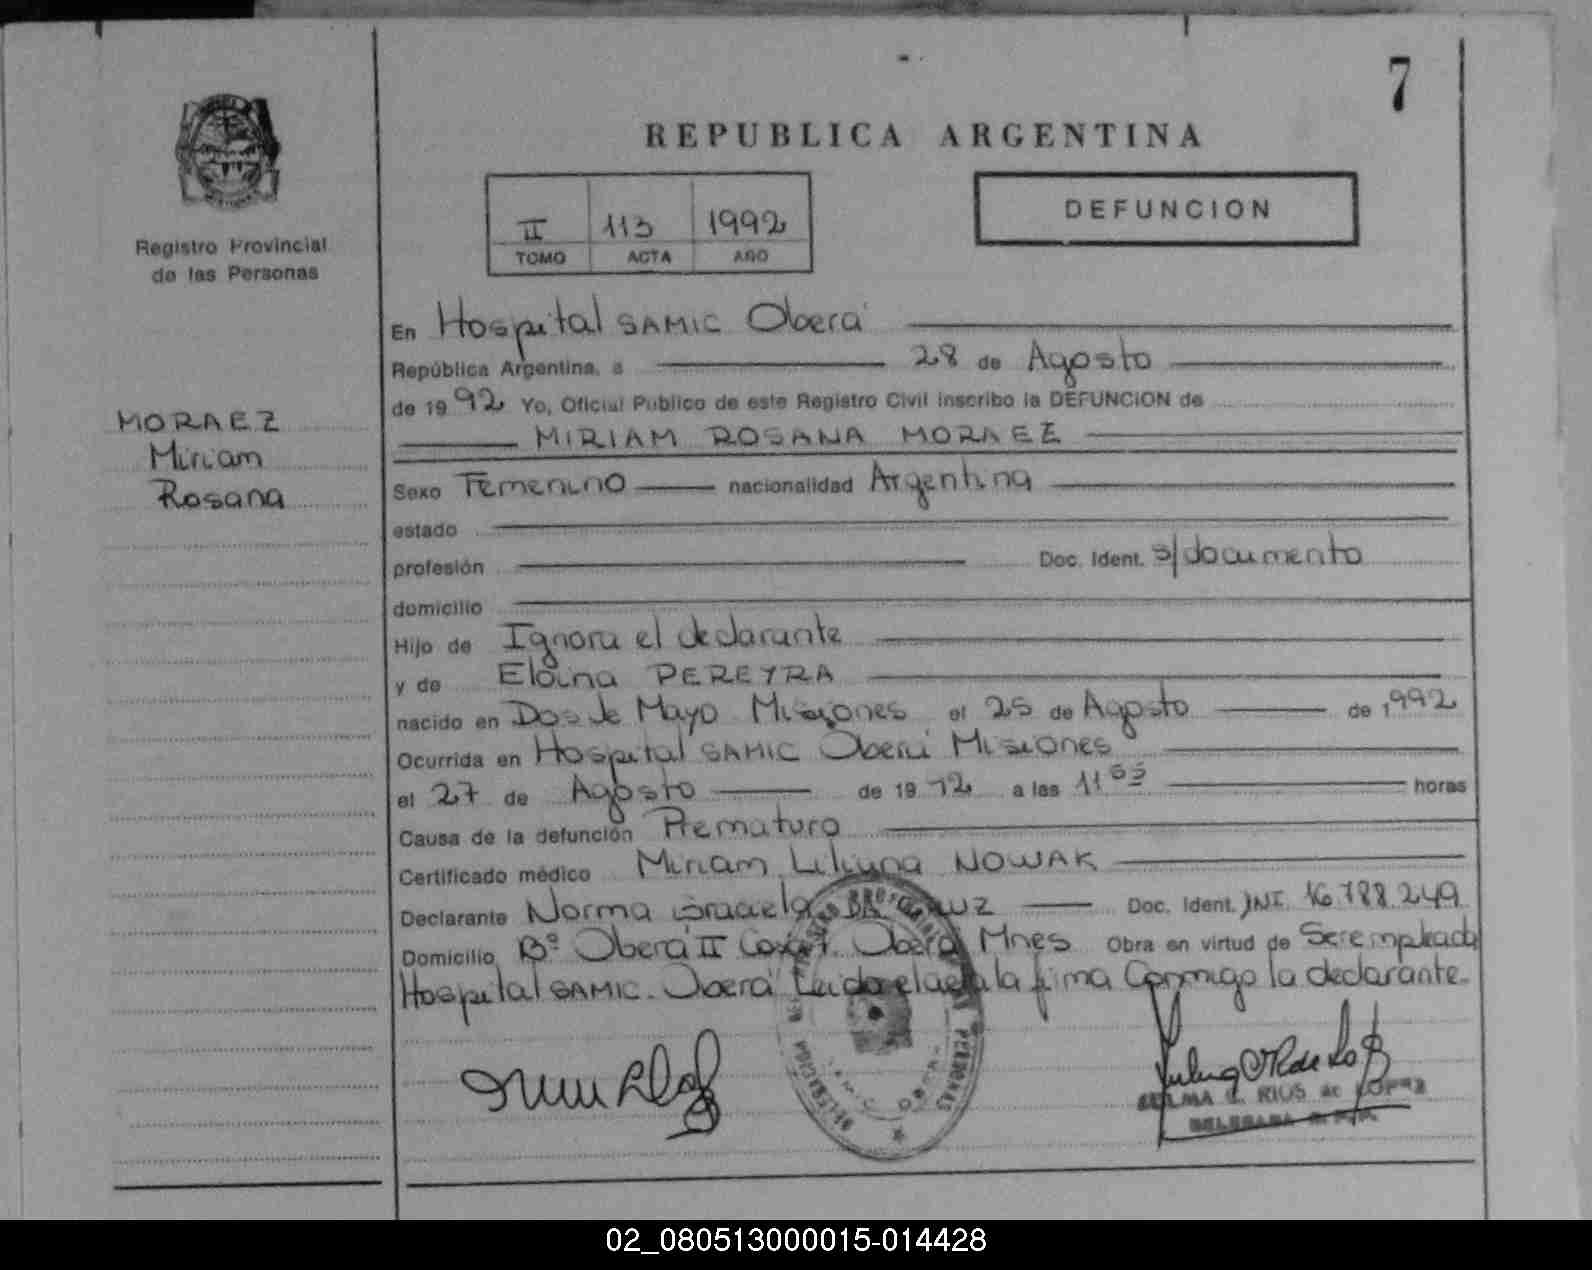 7
REPUBLICA ARGENTINA
II 113 1992
TOMO ACTA AÑO
DEFUNCION
Registro Provincial
de las Personas
MORAEZ
Miriam
Rosana
En Hospital SAMIC Oberá
República Argentina, a 28 de Agosto
de 1992 Yo, Oficial Publico de este Registro Civil inscribo la DEFUNCION de
MIRIAM ROSANA MORAEZ
Sexo Femenino nacionalidad Argentina
estado
profesión Doc. Ident. s/documento
domicilio
Hijo de Ignora el declarante
y de PEREYRA
nacido en Dos de Mayo Misiones el 25 de Agosto de 1992
Ocurrida en Hospital SAMIC Oberá Misiones
el 27 de Agosto de 19 a las 11 horas
Causa de la defunción Prematuro
Certificado médico Miriam Liliana NOWAK
Declarante Norma Graciela DA Doc. Ident. DNI. 16.788.249
Domicilio Bº Oberá II Casa Oberá Mnes Obra en virtud de Ser empleada
Hospital SAMIC. Oberá Leida el acta la firma Conmigo la declarante.
RIOS de LOPEZ
DELEGADA
02_080513000015-014428